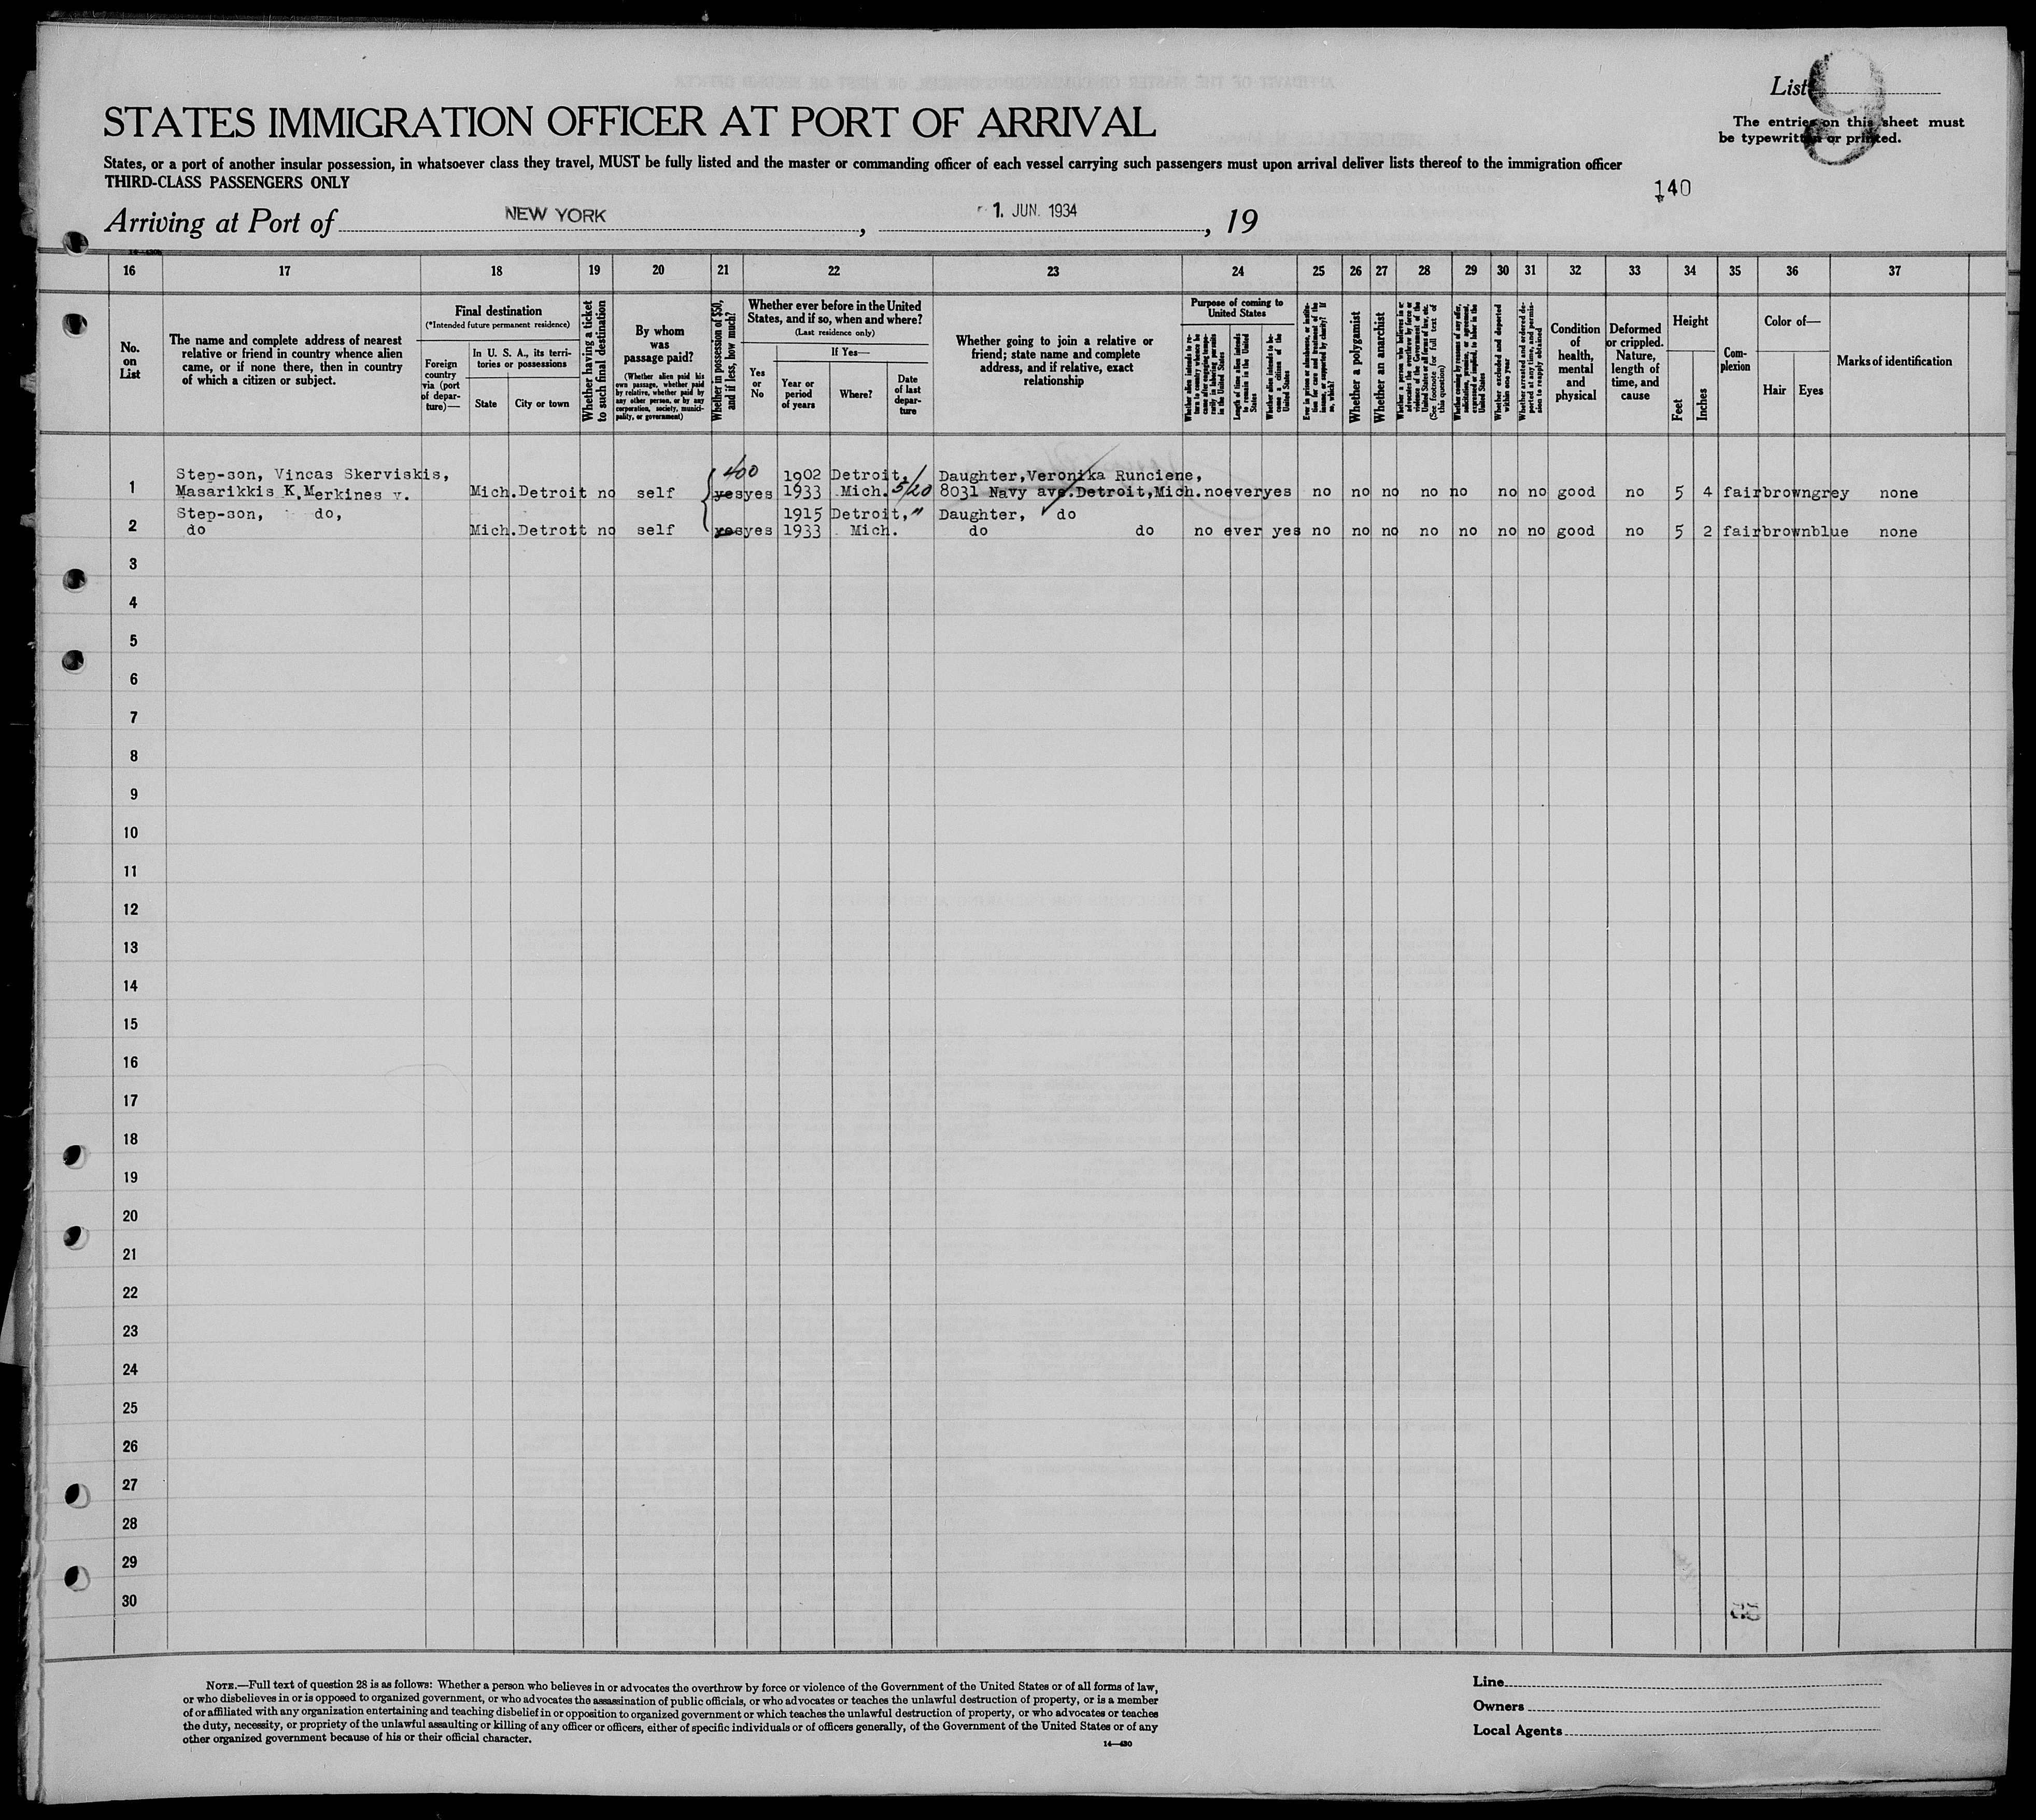 List 9
STATES IMMIGRATION OFFICER AT PORT OF ARRIVAL
The entries on this sheet must
be typewritten or printed.
States, or a port of another insular possession, in whatsoever class they travel, MUST be fully listed and the master or commanding officer of each vessel carrying such passengers must upon arrival deliver lists thereof to the immigration officer
THIRD-CLASS PASSENGERS ONLY
140
Arriving at Port of NEW YORK, 1. JUN. 1934, 19
16 17 18 19 20 21 22 23 24 25 26 27 28 29 30 31 32 33 34 35 36 37
No.
on
List
The name and complete address of nearest
relative or friend in country whence alien
came, or if none there, then in country
of which a citizen or subject.
Final destination
(*Intended future permanent residence)
Foreign
country
via (port
of depar-
ture)—
In U. S. A., its terri-
tories or possessions
State
City or town
Whether having a ticket
to such final destination
By whom
was
passage paid?
(Whether alien paid his
own passage, whether paid
by relative, whether paid by
any other person, or by any
corporation, society, munici-
pality, or government)
Whether in possession of $50,
and if less, how much?
Whether ever before in the United
States, and if so, when and where?
(Last residence only)
Yes
or
No
If Yes—
Year or
period
of years
Where?
Date
of last
depar-
ture
Whether going to join a relative or
friend; state name and complete
address, and if relative, exact
relationship
Purpose of coming to
United States
Whether alien intends to re-
turn to country whence he
came after engaging tempo-
rarily in laboring pursuits
in the United States
Length of time alien intends
to remain in the United
States
Whether alien intends to be-
come a citizen of the
United States
Ever in prison or almshouse, or institu-
tion for care and treatment of the
insane, or supported by charity? If
so, which?
Whether a polygamist
Whether an anarchist
Whether a person who believes in or
advocates the overthrow by force or
violence of the Government of the
United States or all forms of law, etc.
(See footnote for full text of
this question)
Whether coming by reason of any offer,
solicitation, promise, or agreement,
expressed or implied, to labor in the
United States
Whether excluded and deported
within one year
Whether arrested and ordered de-
ported at any time, and permis-
sion to reapply obtained
Condition
of
health,
mental
and
physical
Deformed
or crippled.
Nature,
length of
time, and
cause
Height
Feet
Inches
Com-
plexion
Color of—
Hair
Eyes
Marks of identification
Step-son, Vincas Skerviskis, 400 1902 Detroit, Daughter, Veronika Runciene,
1 Masarikkis K. Merkines v. Mich. Detroit no self yes yes 1933 Mich. 5/20 8031 Navy ave. Detroit, Mich. no ever yes no no no no no no no good no 5 4 fair brown grey none
Step-son, do, 1915 Detroit, " Daughter, do
2 do Mich. Detroit no self yes yes 1933 Mich. do do no ever yes no no no no no no no good no 5 2 fair brown blue none
3
4
5
6
7
8
9
10
11
12
13
14
15
16
17
18
19
20
21
22
23
24
25
26
27
28
29
30
NOTE.—Full text of question 28 is as follows: Whether a person who believes in or advocates the overthrow by force or violence of the Government of the United States or of all forms of law,
or who disbelieves in or is opposed to organized government, or who advocates the assassination of public officials, or who advocates or teaches the unlawful destruction of property, or is a member
of or affiliated with any organization entertaining and teaching disbelief in or opposition to organized government or which teaches the unlawful destruction of property, or who advocates or teaches
the duty, necessity, or propriety of the unlawful assaulting or killing of any officer or officers, either of specific individuals or of officers generally, of the Government of the United States or of any
other organized government because of his or their official character.
14—430
Line
Owners
Local Agents